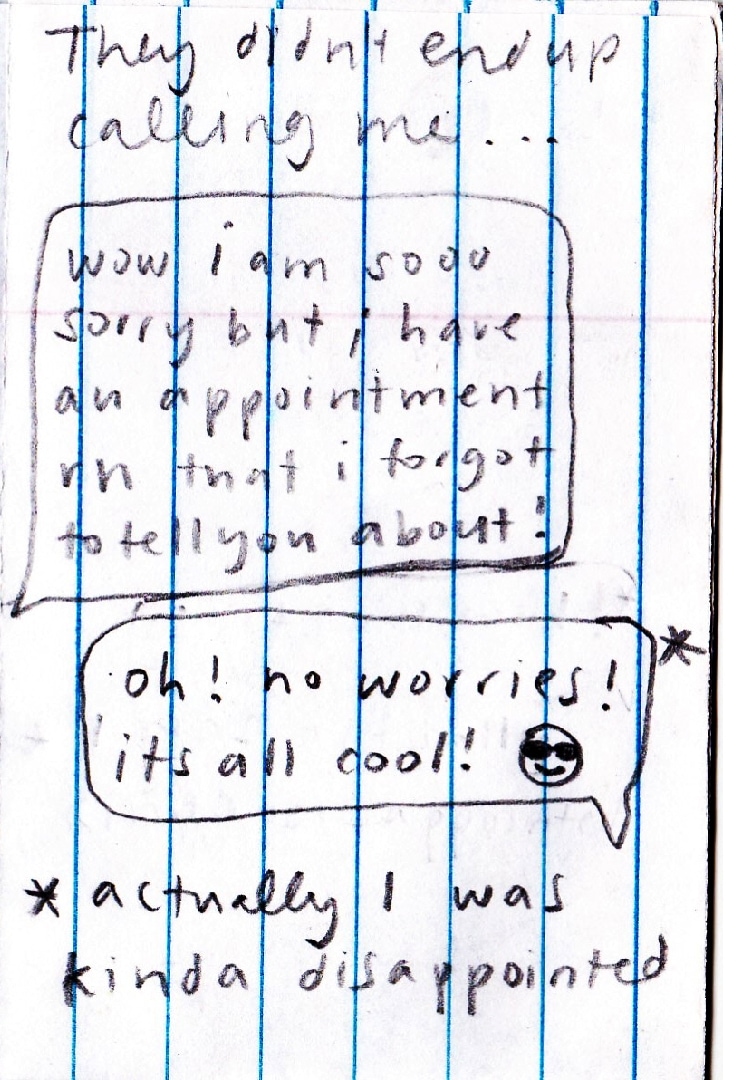 They didnt end up
calling me...
wow i am sooo
sorry but i have
an appointment
rn that i forgot
to tell you about!
oh! no worries! *
its all cool! 😎
* actually I was
kinda disappointed